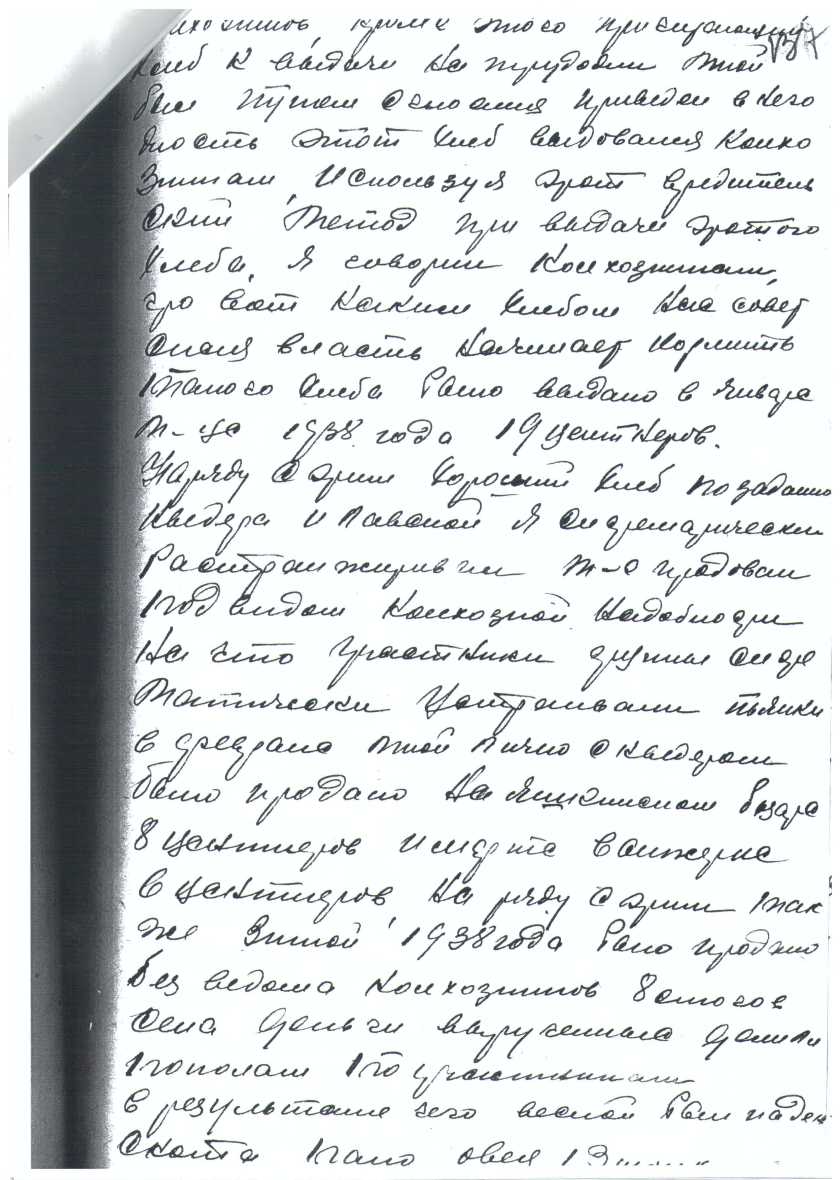 колхозников, кроме этого причитающий
хлеб к выдачи на трудодни мной
был путем согноения приведен в него
дность этот хлеб выдовался колхо
зникам, используя этот вредитель
ский метод при выдачи этого
хлеба, я говорил колхозникам,
что вот каким хлебом нас совет
ская власть начинает кормить
такого хлеба было выдано в январе
м-це 1938 года 19 центнеров.
Наряду с этим хороший хлеб по заданию
и я систематически
растранжиривал т-е продовал
под видом колхозной надобности
на что участники группы систе
матически устраивали пьянки
в феврале мной лично с
было продано на базаре
8 центнеров и в
6 центнеров на ряду с этим так
же зимой 1938 года было продано
без ведома колхозников 8 стогов
сена деньги вырученные делили
пополам по участникам
в результате чего весной был падеж
скота пало овец 13